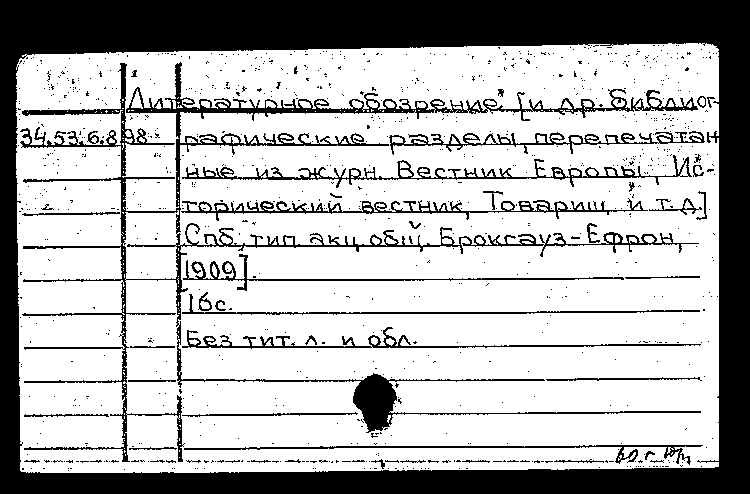 Литературное обозрение [и др. библиог-
34.53.6.898 рафические разделы, перепечатан
ные из журн. Вестник Европы, Ис-
торический вестник, Товарищ, и т.д.]
Спб, тип. акц. общ. Брокгауз-Ефрон,
[1909].
16с.
Без тит. л. и обл.